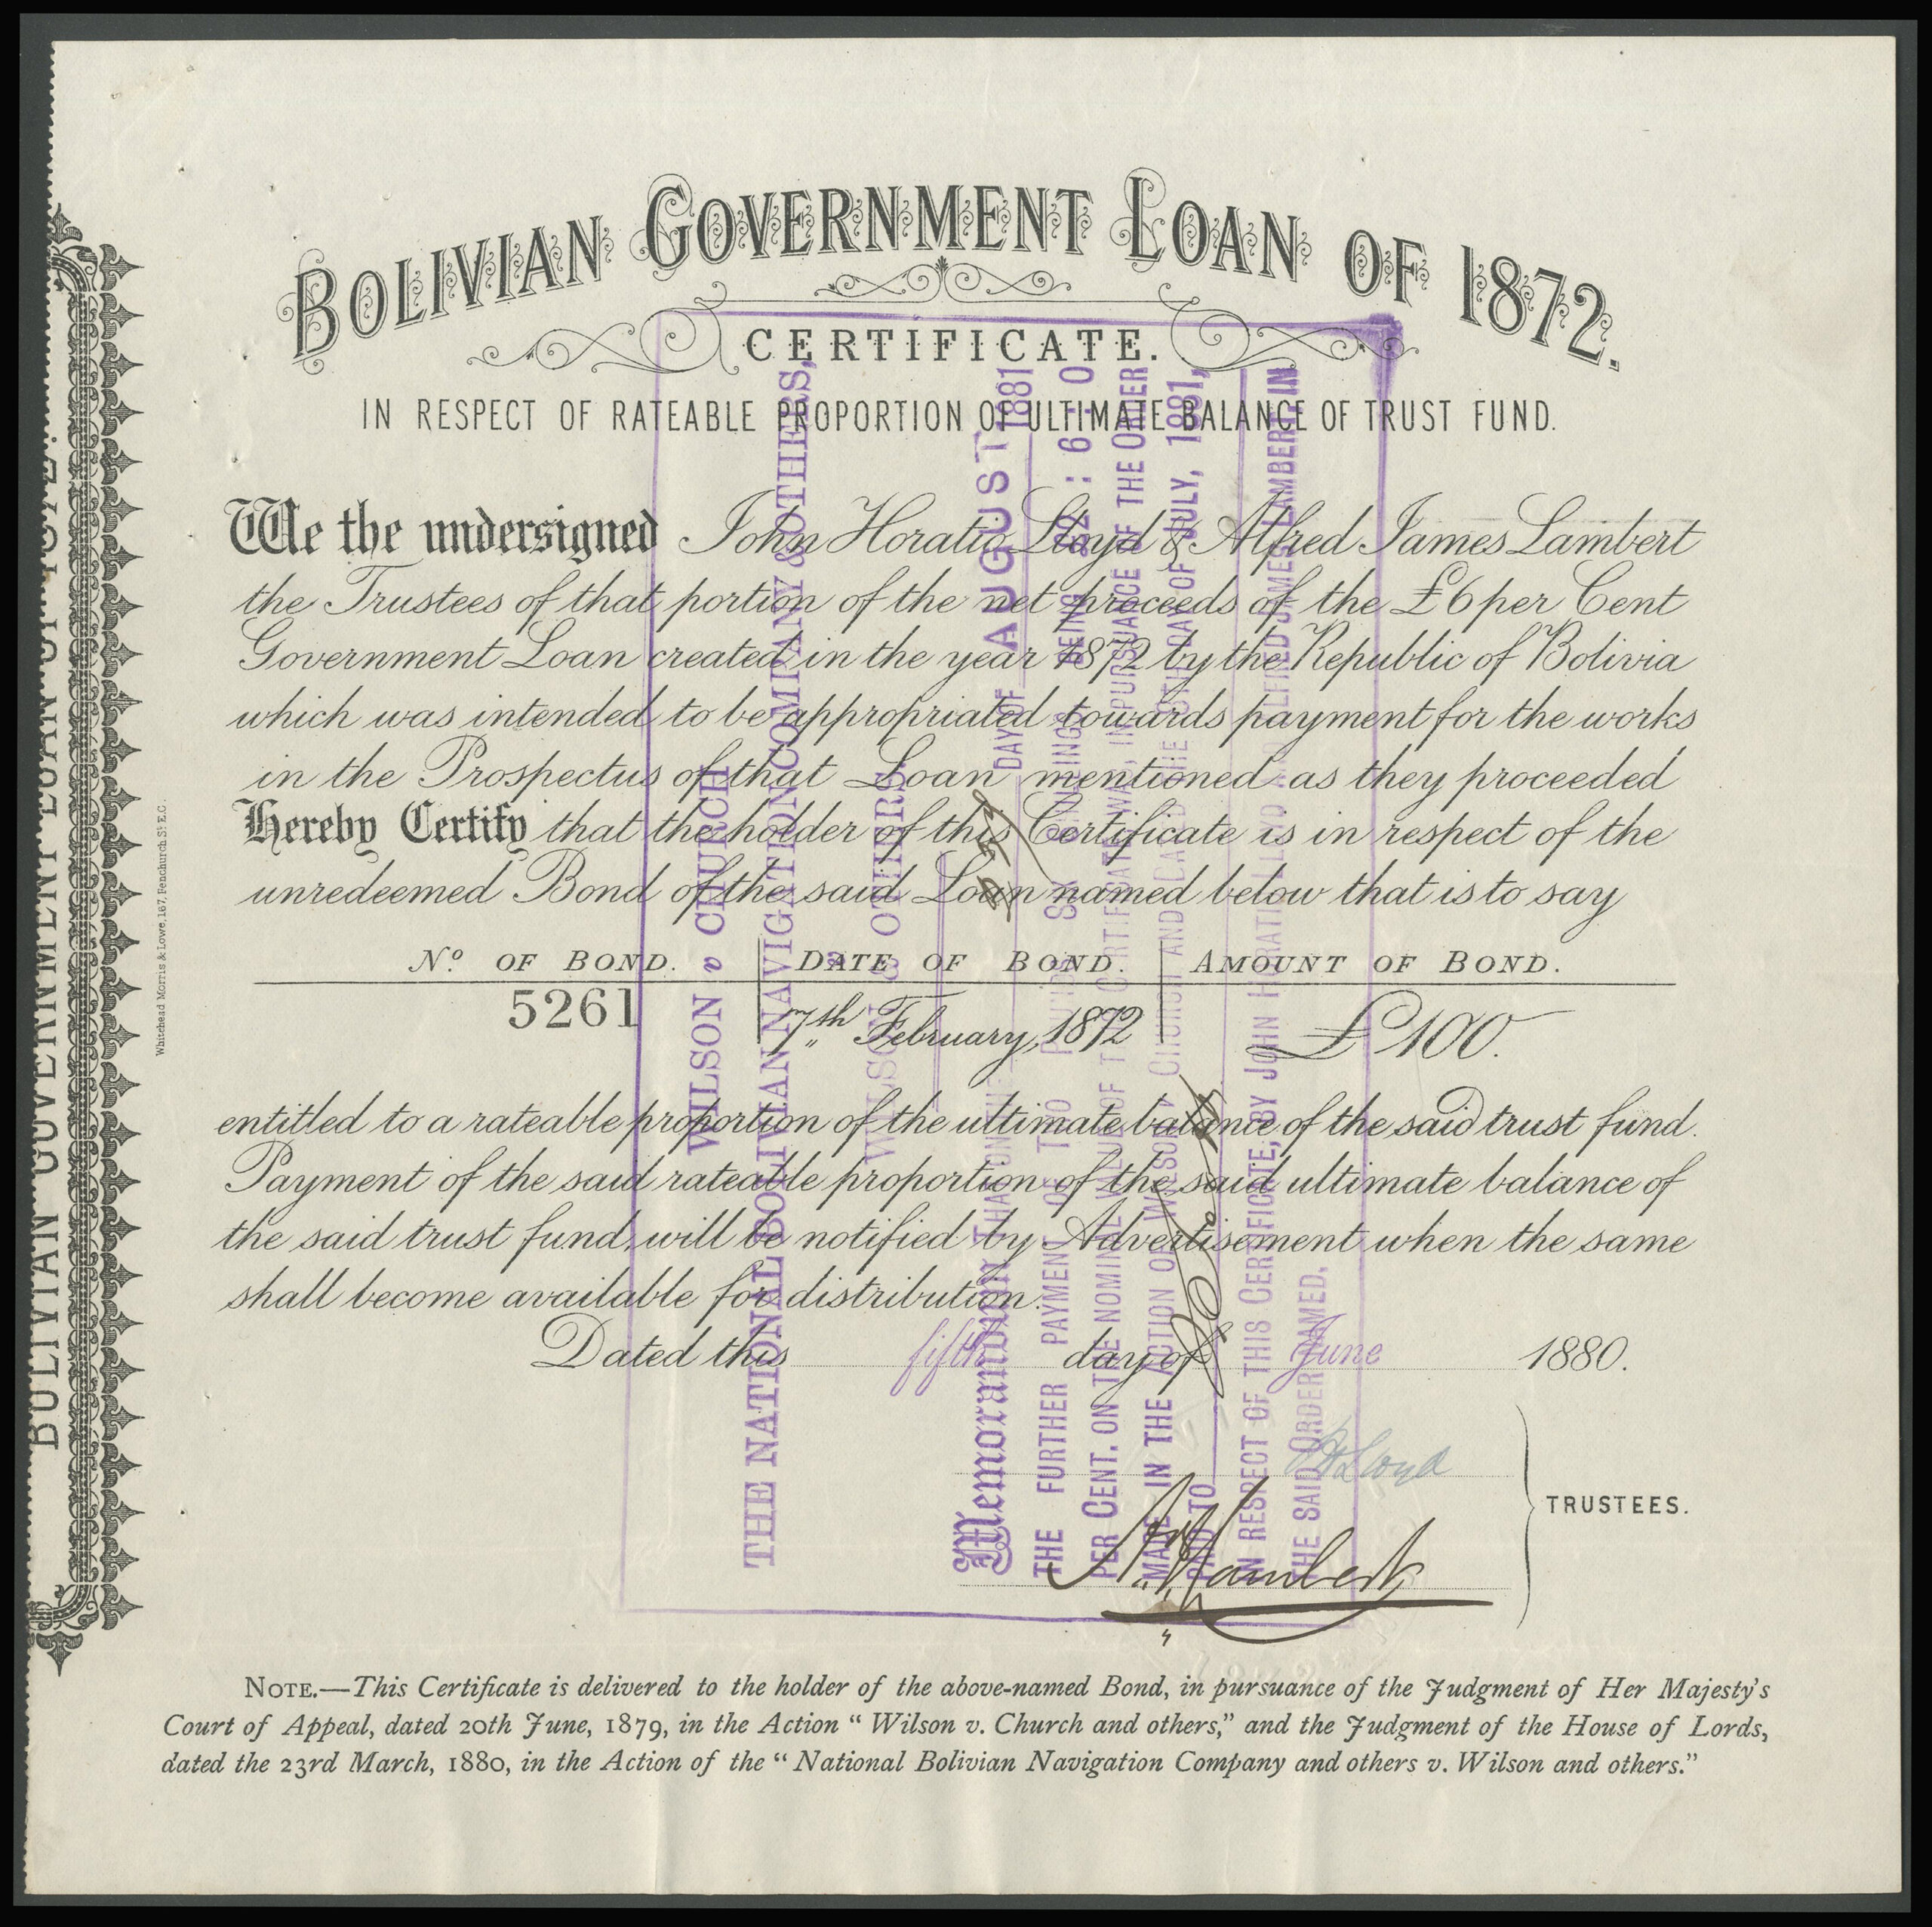 BOLIVIAN GOVERNMENT LOAN OF 1872.
CERTIFICATE.
IN RESPECT OF RATEABLE PROPORTION OF ULTIMATE BALANCE OF TRUST FUND.
We the undersigned John Horatio Lloyd & Alfred James Lambert
the Trustees of that portion of the net proceeds of the £6 per Cent
Government Loan created in the year 1872 by the Republic of Bolivia
which was intended to be appropriated towards payment for the works
in the Prospectus of that Loan mentioned as they proceeded
Hereby Certify that the holder of this Certificate is in respect of the
unredeemed Bond of the said Loan named below that is to say
No. OF BOND. DATE OF BOND. AMOUNT OF BOND.
5261 7th February, 1872 £100.
entitled to a rateable proportion of the ultimate balance of the said trust fund.
Payment of the said rateable proportion of the said ultimate balance of
the said trust fund, will be notified by Advertisement when the same
shall become available for distribution.
Dated this fifth day of June 1880.
JHLloyd
AJLambert
TRUSTEES.
NOTE.—This Certificate is delivered to the holder of the above-named Bond, in pursuance of the Judgment of Her Majesty's
Court of Appeal, dated 20th June, 1879, in the Action “ Wilson v. Church and others,” and the Judgment of the House of Lords,
dated the 23rd March, 1880, in the Action of the “ National Bolivian Navigation Company and others v. Wilson and others.”
Whitehead Morris & Lowe, 167, Fenchurch St. E.C.
BOLIVIAN GOVERNMENT LOAN OF
WILSON v CHURCH
THE NATIONAL BOLIVIAN NAVIGATION COMPANY & OTHERS,
v
WILSON & OTHERS.
Memorandum THAT ON THE DAY OF AUGUST 1881
THE FURTHER PAYMENT OF TWO POUNDS SIX SHILLINGS BEING £2 : 6 : 0
PER CENT. ON THE NOMINAL VALUE OF THIS CERTIFICATE WAS, IN PURSUANCE OF THE ORDER
MADE IN THE ACTION OF WILSON v CHURCH AND DATED THE 5TH DAY OF JULY, 1881,
PAID TO
IN RESPECT OF THIS CERTIFICATE, BY JOHN HORATIO LLOYD AND ALFRED JAMES LAMBERT, IN
THE SAID ORDER NAMED.